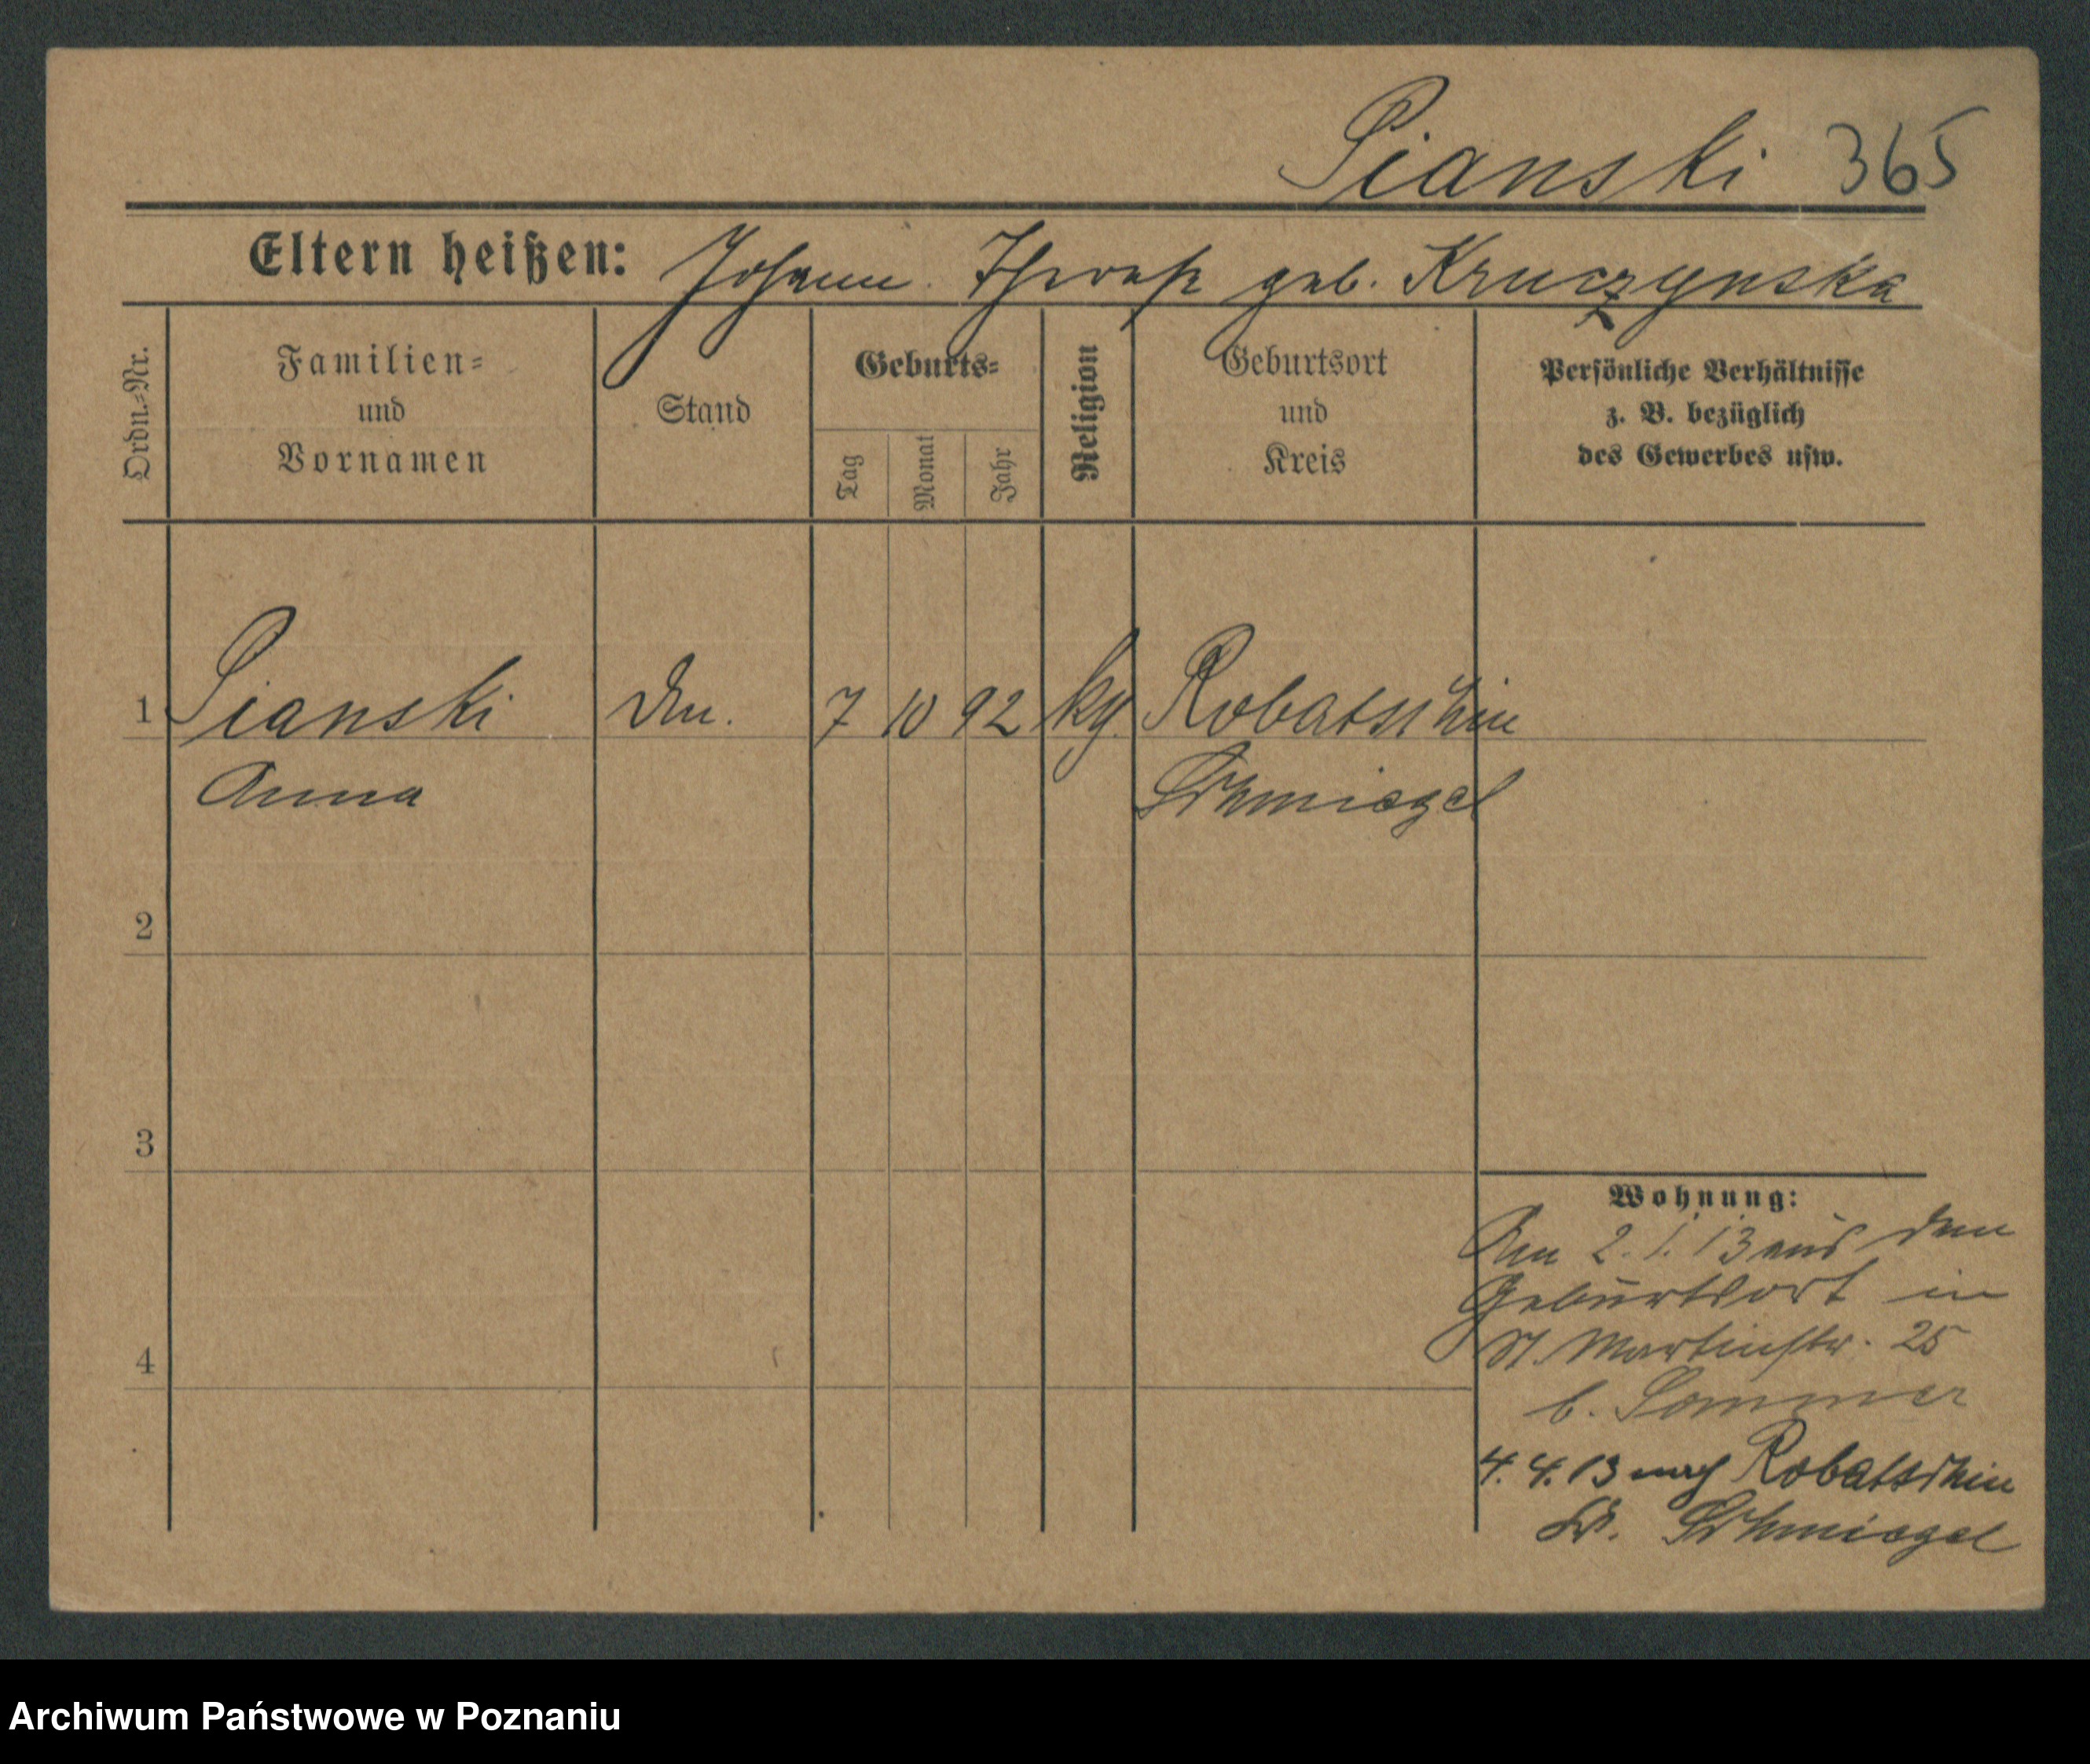 Pianski 365
Eltern heißen: Johann. Therese geb. Kruczynska
Ordn.=Nr.
Familien=
und
Vornamen
Stand
Geburts=
Tag
Monat
Jahr
Religion
Geburtsort
und
Kreis
Persönliche Verhältnisse
z. B. bezüglich
des Gewerbes usw.
1 Pianski 7 10 92 Robatschin
Anna Schmiegel
2
3
4
Wohnung:
2. 1. 13 aus dem
Geburtsort in
St. Martinstr. 25
b. Sommer
4. 4. 13 nach Robatschin
Kr. Schmiegel
Archiwum Państwowe w Poznaniu